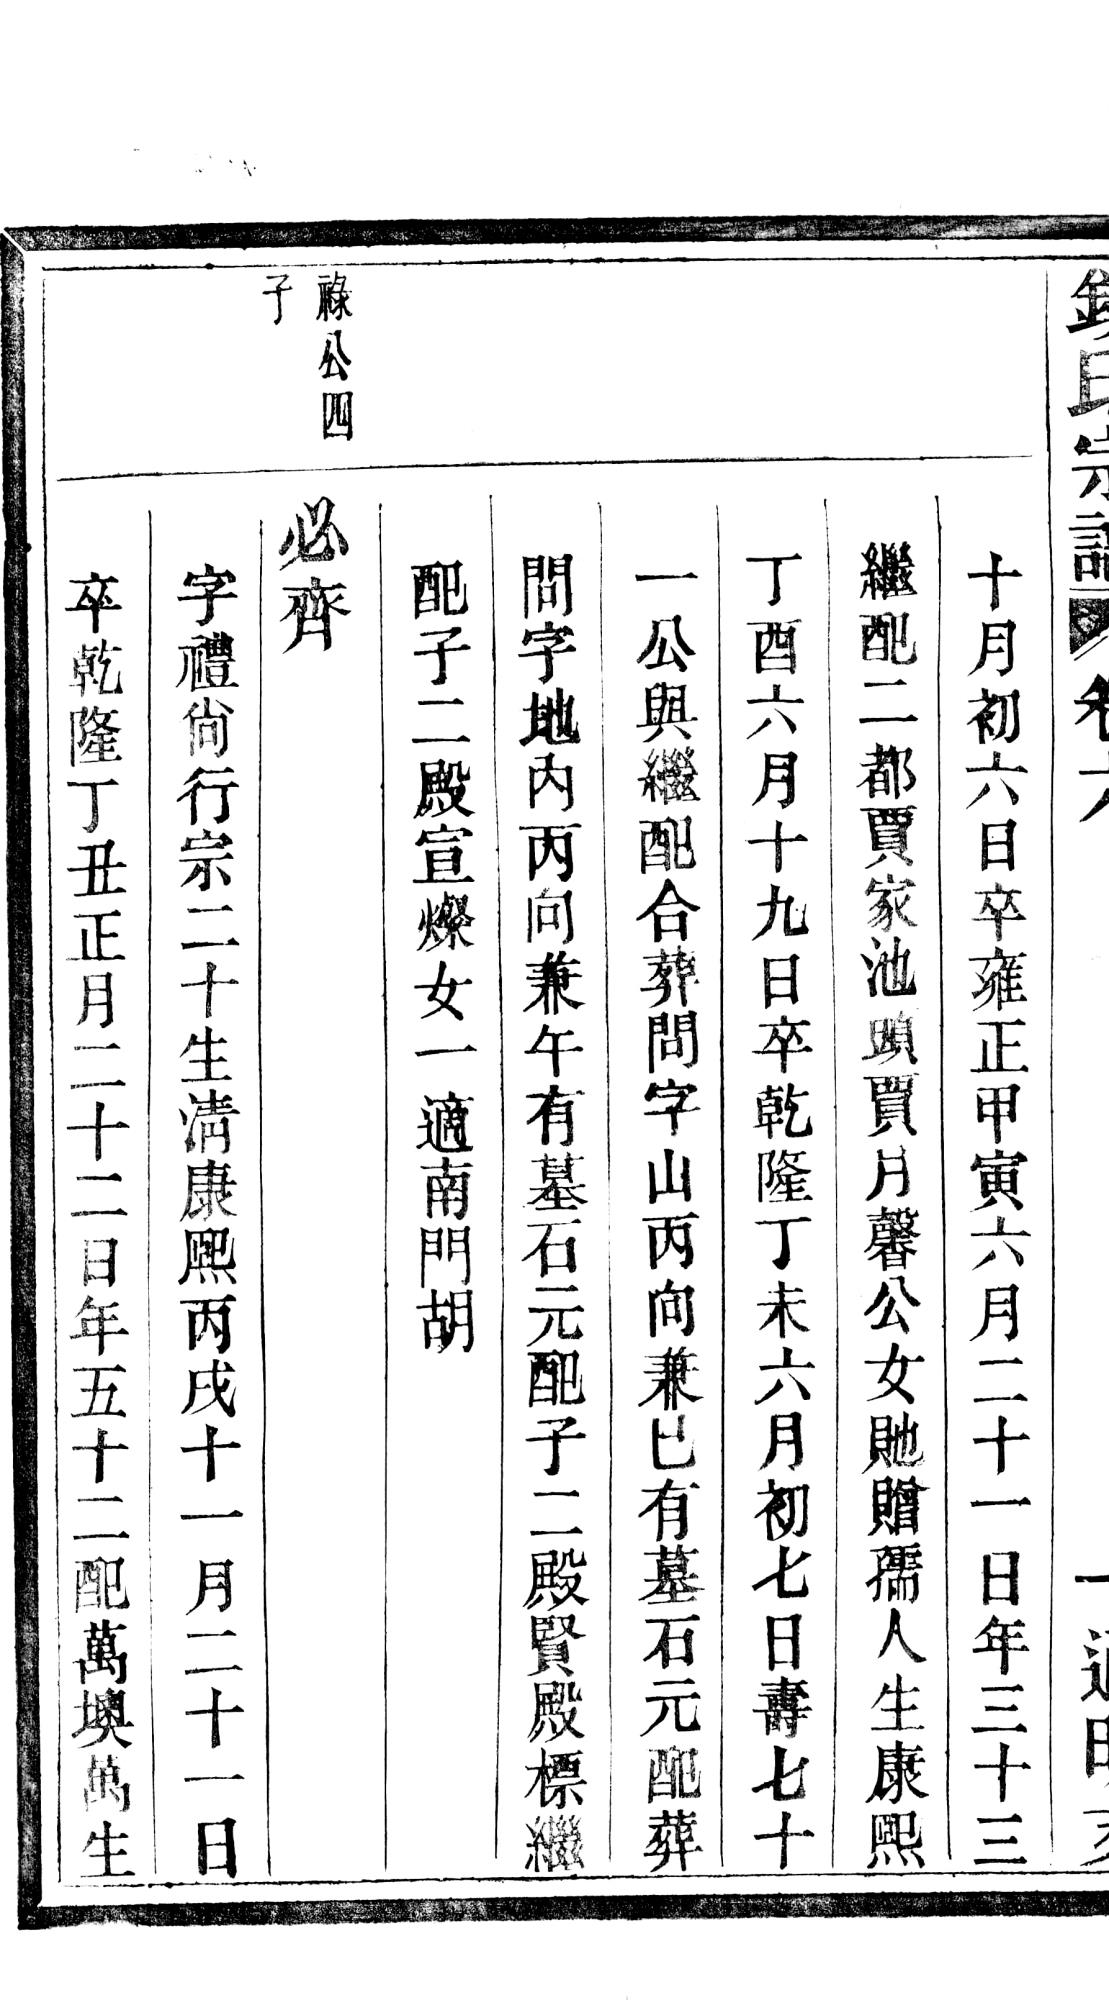 氏宗譜 卷六
十月初六日卒雍正甲寅六月二十一日年三十三
繼配二都賈家池頭賈月馨公女貤贈孺人生康熙
丁酉六月十九日卒乾隆丁未六月初七日壽七十
一公與繼配合葬問字山丙向兼巳有墓石元配葬
問字地內丙向兼午有墓石元配子二殿賢殿標繼
配子二殿宣燦女一適南門胡
祿公四
子
必齊
字禮尙行宗二十生淸康熙丙戌十一月二十一日
卒乾隆丁丑正月二十二日年五十二配萬墺萬生